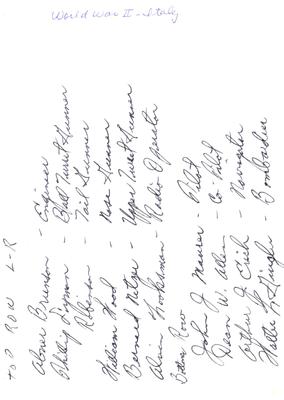 World War II - Italy
TOP ROW L-R
Abner Brunson - Engineer
Phillip - Ball Turret Gunner
Robinson - Tail Gunner
William Wood - Nose Gunner
Bernard Netzer - Upper Turret Gunner
Alvin - Radio Operator
Bottom Row
John J. Maurer - Pilot
Dean W. Allen - Co-Pilot
Arthur - Navigator
- Bombardier